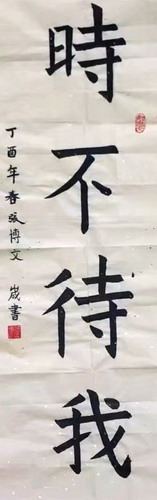 時不待我
丁酉年春張博文 崴書